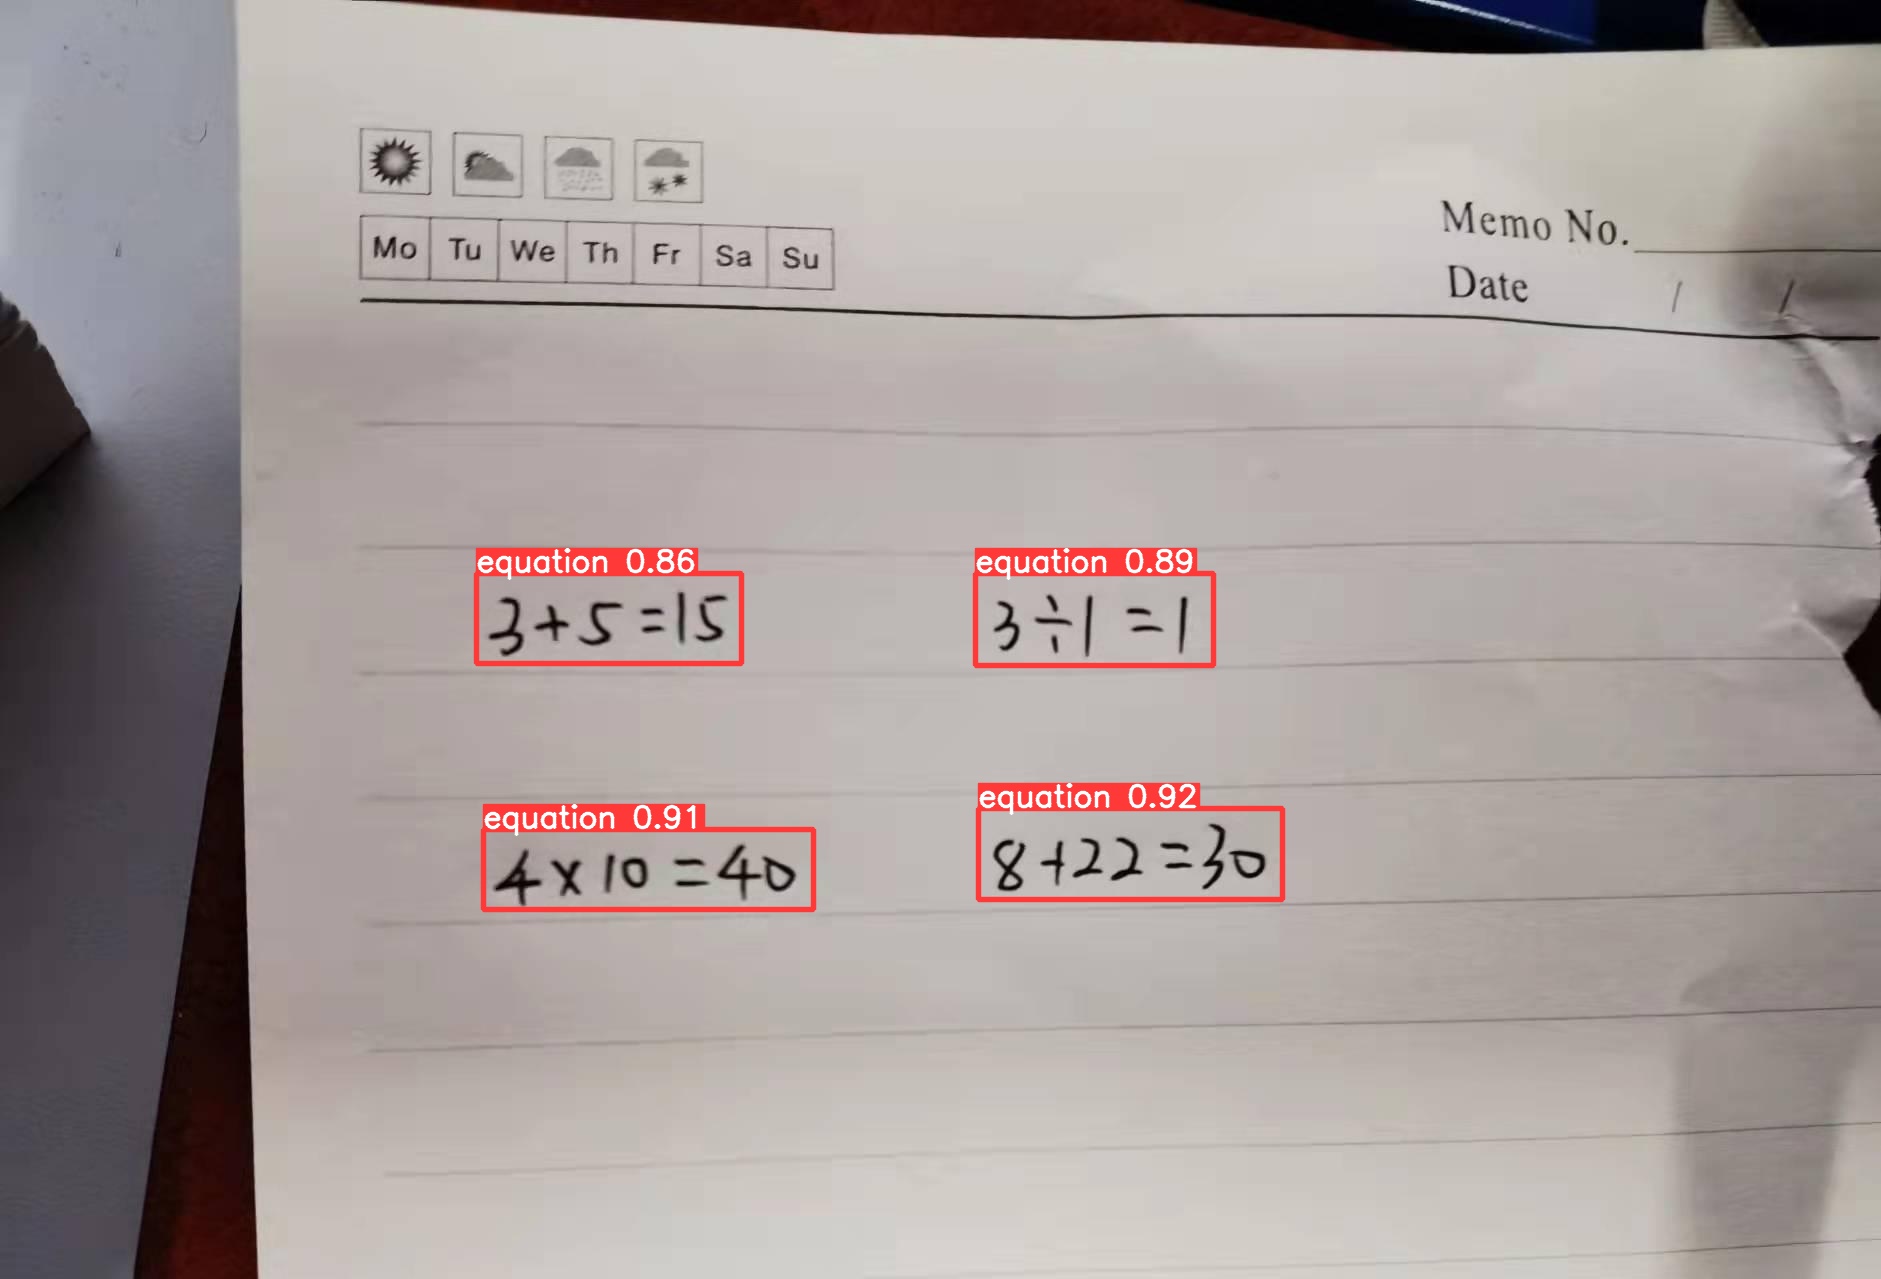 Mo Tu We Th Fr Sa Su
Memo No.
Date / /
equation 0.86
3+5=15
equation 0.89
3÷1=1
equation 0.91
4×10=40
equation 0.92
8+22=30